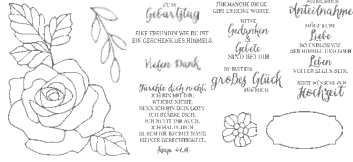 ZUM
Geburtstag
EINE FREUNDIN WIE DU IST
EIN GESCHENK DES HIMMELS.
Vielen Dank
Fürchte dich nicht,
ICH BIN MIT DIR;
WEICHE NICHT,
DENN ICH BIN DEIN GOTT.
ICH STÄRKE DICH,
ICH HELFE DIR AUCH,
ICH HALTE DICH
DURCH DIE RECHTE HAND
MEINER GERECHTIGKEIT.
Jesaja 41,10
FÜR MANCHE DINGE
GIBT ES KEINE WORTE.
MEINE
Gedanken
&
Gebete
SIND BEI DIR
DU BIST EIN
großes Glück
Anteilnahme
MÖGE EURE
Liebe
SO ENDLOS WIE
DER HIMMEL UND EUER
Leben
VOLLER SEGEN SEIN.
BESTE WÜNSCHE ZUR
Hochzeit